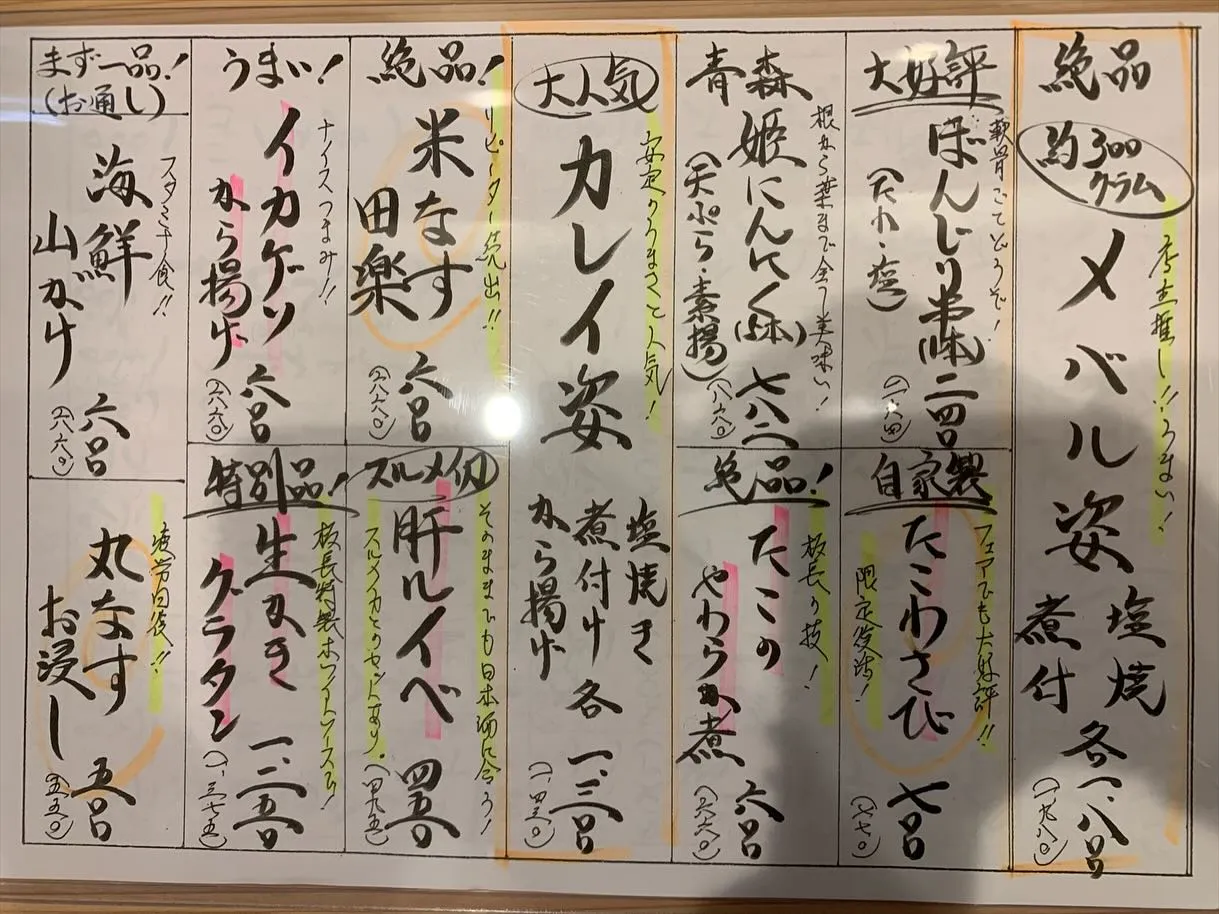 絶品
約300
グラム
店主推し!!うまい!
メバル姿
塩焼
煮付
各一、八〇〇
(一、九八〇)
大好評
軟骨ごとどうぞ!
ぼんじり串(1本)
(たれ・塩)
二四〇
(二六四)
自家製
フェアでも大好評!!
たこわさび
限定復活!
七〇〇
(七七〇)
青森
根から葉まで全て美味い!
姫にんにく(1本)
(天ぷら・素揚)
七八二
(八六〇)
絶品!
板長の技!
たこの
やわらか煮
六〇〇
(六六〇)
大人気
安定のうまさで人気!
カレイ姿
塩焼き
煮付け
から揚げ
各一、三〇〇
(一、四三〇)
絶品!
リピーター続出!!
米なす
田楽
六〇〇
(六六〇)
スルメイカ
そのままでも日本酒に合う!
肝ルイベ
スルメイカとのセットあり。
四五〇
(四九五)
うまい!
ナイスつまみ!!
イカゲソ
から揚げ
六〇〇
(六六〇)
特別品!
板長特製ホワイトソースで!
生かき
グラタン
一、二五〇
(一、三七五)
まず一品!
(お通し)
スタミナ食!!
海鮮
山かけ
六〇〇
(六六〇)
疲労回復!!
丸なす
お浸し
五〇〇
(五五〇)